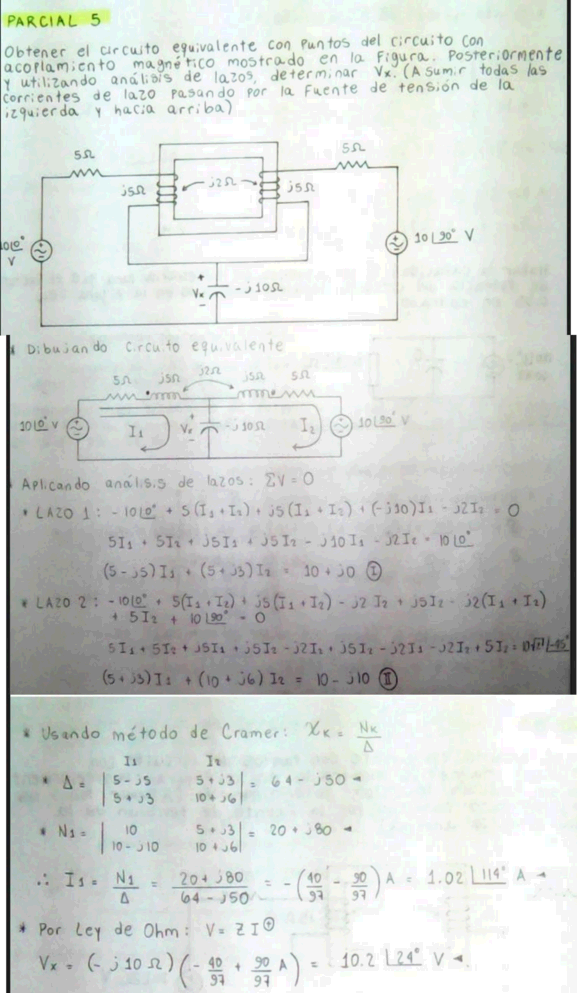 PARCIAL 5
Obtener el circuito equivalente con puntos del circuito con
acoplamiento magnético mostrado en la Figura. Posteriormente
y utilizando análisis de lazos, determinar Vx. (Asumir todas las
corrientes de lazo pasando por la fuente de tensión de la
izquierda y hacia arriba)
5Ω
5Ω
j5Ω
j2Ω
j5Ω
10∠0°
V
10∠90° V
+
Vx
-
-j10Ω
* Dibujando circuito equivalente
5Ω j5Ω j2Ω j5Ω 5Ω
10∠0° V I1 Vx + - -j10Ω I2 10∠90° V
Aplicando análisis de lazos: ΣV = 0
* LAZO 1: -10∠0° + 5(I1 + I2) + j5(I1 + I2) + (-j10)I1 - j2I2 = 0
5I1 + 5I2 + j5I1 + j5I2 - j10I1 - j2I2 = 10∠0°
(5-j5)I1 + (5+j3)I2 = 10 + j0 Ⓘ
* LAZO 2: -10∠0° + 5(I1 + I2) + j5(I1 + I2) - j2I2 + j5I2 - j2(I1 + I2)
+ 5I2 + 10∠90° = 0
5I1 + 5I2 + j5I1 + j5I2 - j2I2 + j5I2 - j2I1 - j2I2 + 5I2 = 10√2∠-45°
(5+j3)I1 + (10+j6)I2 = 10 - j10 Ⅱ
* Usando método de Cramer: Xk = Nk/Δ
I1 I2
* Δ = | 5-j5 5+j3 | = 64 - j50
| 5+j3 10+j6 |
* N1 = | 10 5+j3 | = 20 + j80
| 10-j10 10+j6 |
∴ I1 = N1/Δ = (20+j80)/(64-j50) = -(40/97 - 90/97) A = 1.02∠114° A
* Por Ley de Ohm: V = ZI
Vx = (-j10Ω)(-40/97 + 90/97 A) = 10.2∠24° V